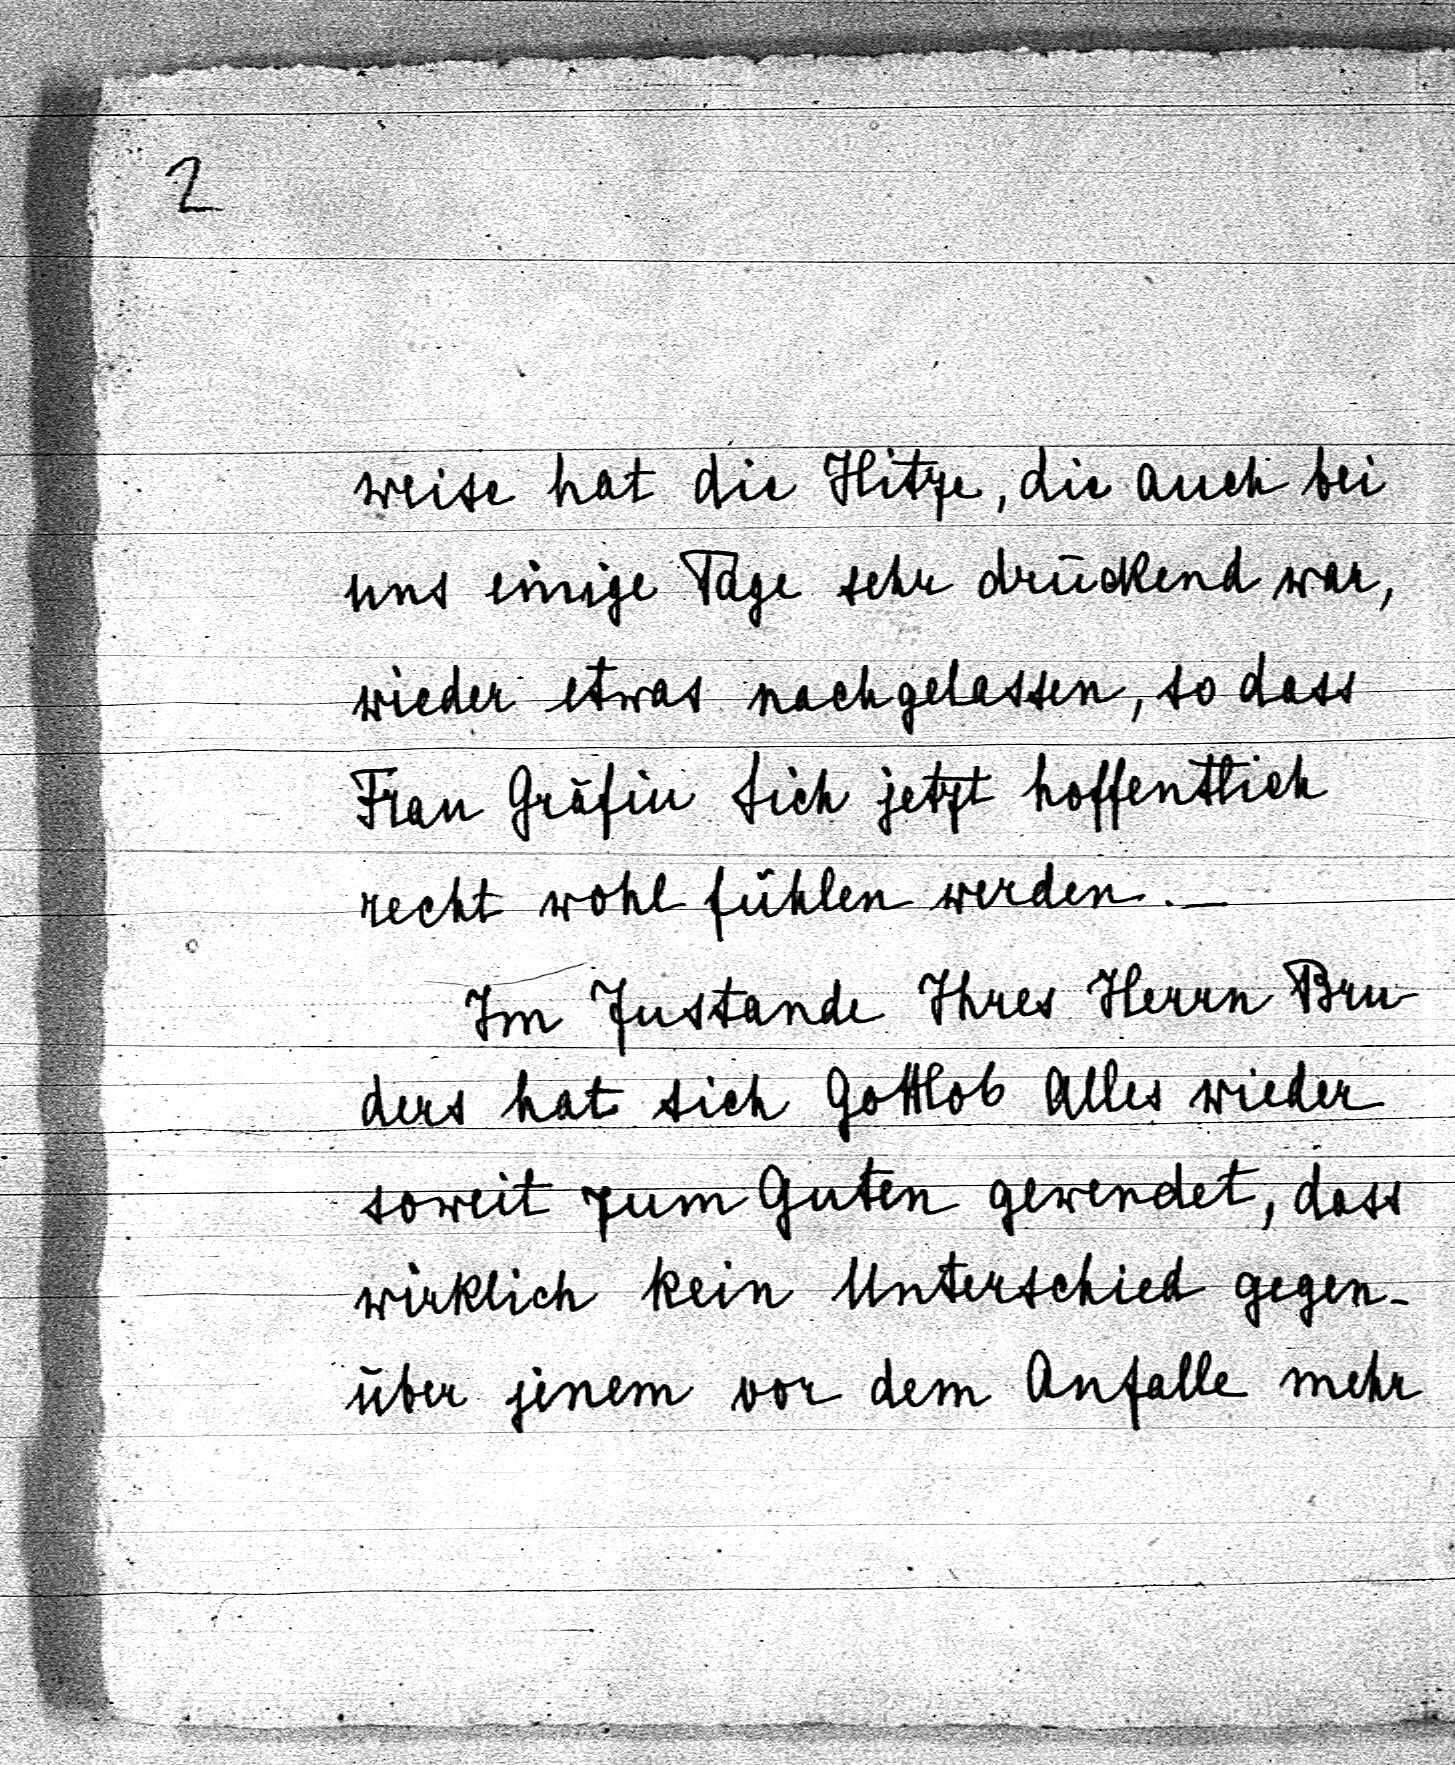 2
weise hat die Hitze, die auch bei
uns einige Tage sehr drückend war,
wieder etwas nachgelassen, so dass
Frau Gräfin Sich jetzt hoffentlich
recht wohl fühlen werden. —
Im Zustande Ihres Herrn Bru-
ders hat sich Gottlob Alles wieder
soweit zum Guten gewendet, dass
wirklich kein Unterschied gegen-
über jenem vor dem Anfalle mehr